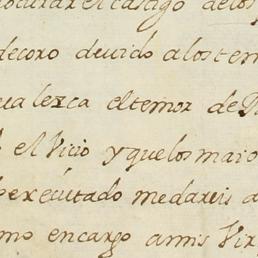 procurar el castigo de los
decoro devido alos tem
valezca el temor de D
el Vicio y que los maio
executado me dareis a
mo encargo a mis Vir